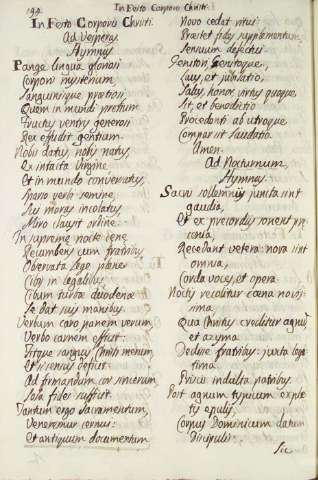 194. In Festo Corporis Christi.
In Festo Corporis Christi.
Ad Vesperas
Hymnus
Pange lingua gloriosi
Corporis mysterium,
Sanguinisque pretiosi,
Quem in mundi pretium
Fructus ventris generosi
Rex effudit gentium.
Nobis datus, nobis natus,
Ex intacta Virgine
Et in mundo conversatus,
Sparso verbi semine,
Sui moras incolatus,
Miro clausit ordine.
In supremæ nocte cœnæ
Recumbens cum fratribus
Observata lege plane
Cibis in legalibus,
Cibum turbæ duodenæ
Se dat suis manibus.
Verbum caro, panem verum
Verbo carnem efficit:
Fitque sanguis Christi merum,
Et si sensus deficit,
Ad firmandum cor sincerum,
Sola fides sufficit.
Tantum ergo Sacramentum,
Veneremur cernui:
Et antiquum documentum
Novo cedat ritui:
Præstet fides supplementum
Sensuum defectui.
Genitori, Genitoque,
Laus, et jubilatio,
Salus, honor, virtus quoque,
Sit, et benedictio
Procedenti ab utroque
Compar sit laudatio.
Amen.
Ad Nocturnum,
Hymnus.
Sacris solemniis juncta sint
gaudia,
Et ex precordiis sonent præ
conia,
Recedant vetera: nova sint
omnia,
Corda voces, et opera.
Noctis recolitur cœna novis
sima,
Qua Christus creditur agnum
et azyma
Dedisse fratribus: juxta legi
tima
Priscis indulta patribus.
Post agnum typicum exple
tis epulis,
Corpus Dominicum datum
Discipulis:
Sic